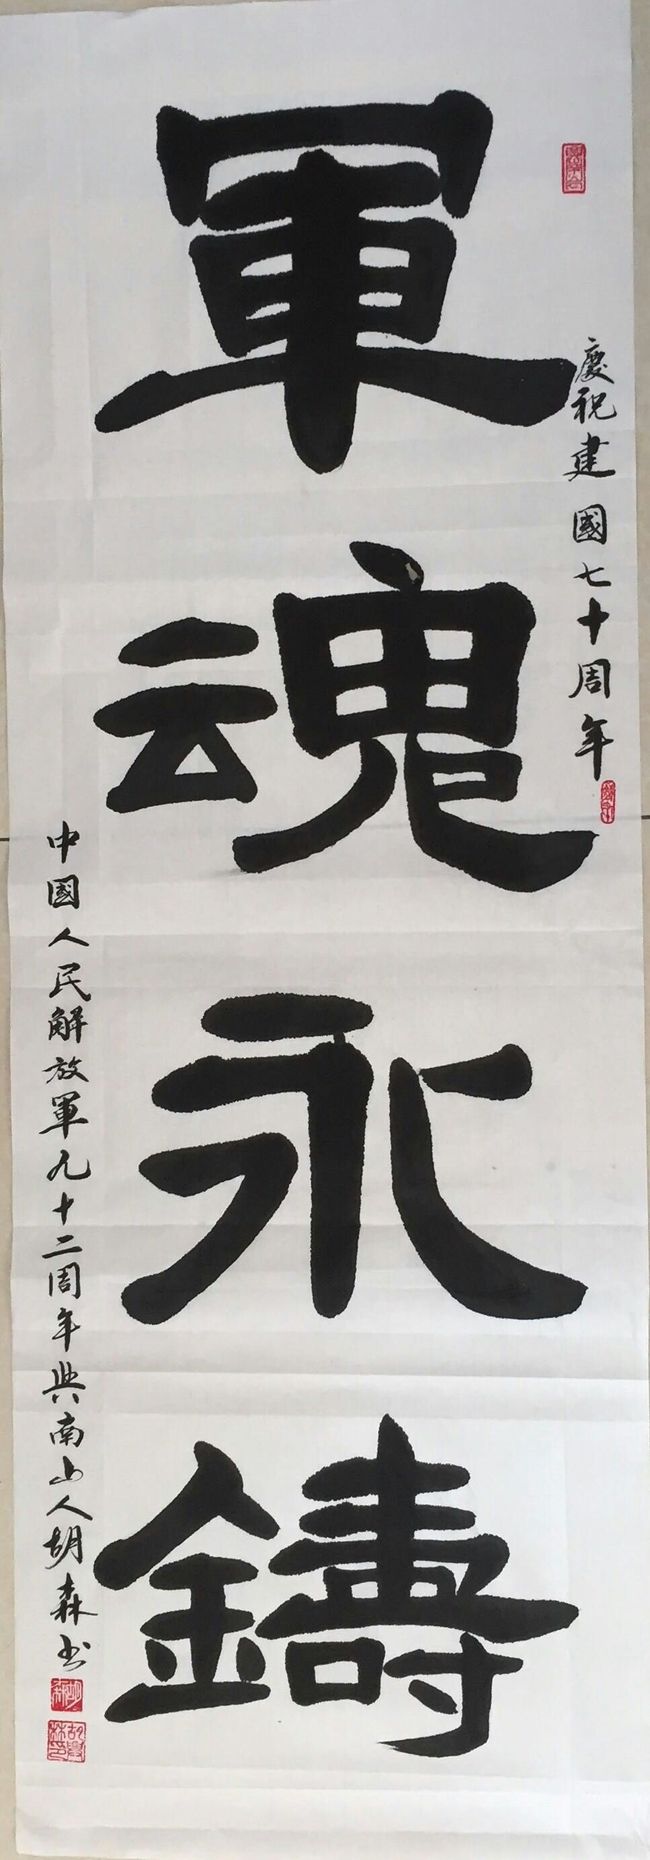 慶祝建國七十周年
軍魂永鑄
中國人民解放軍九十二周年興南山人胡森书